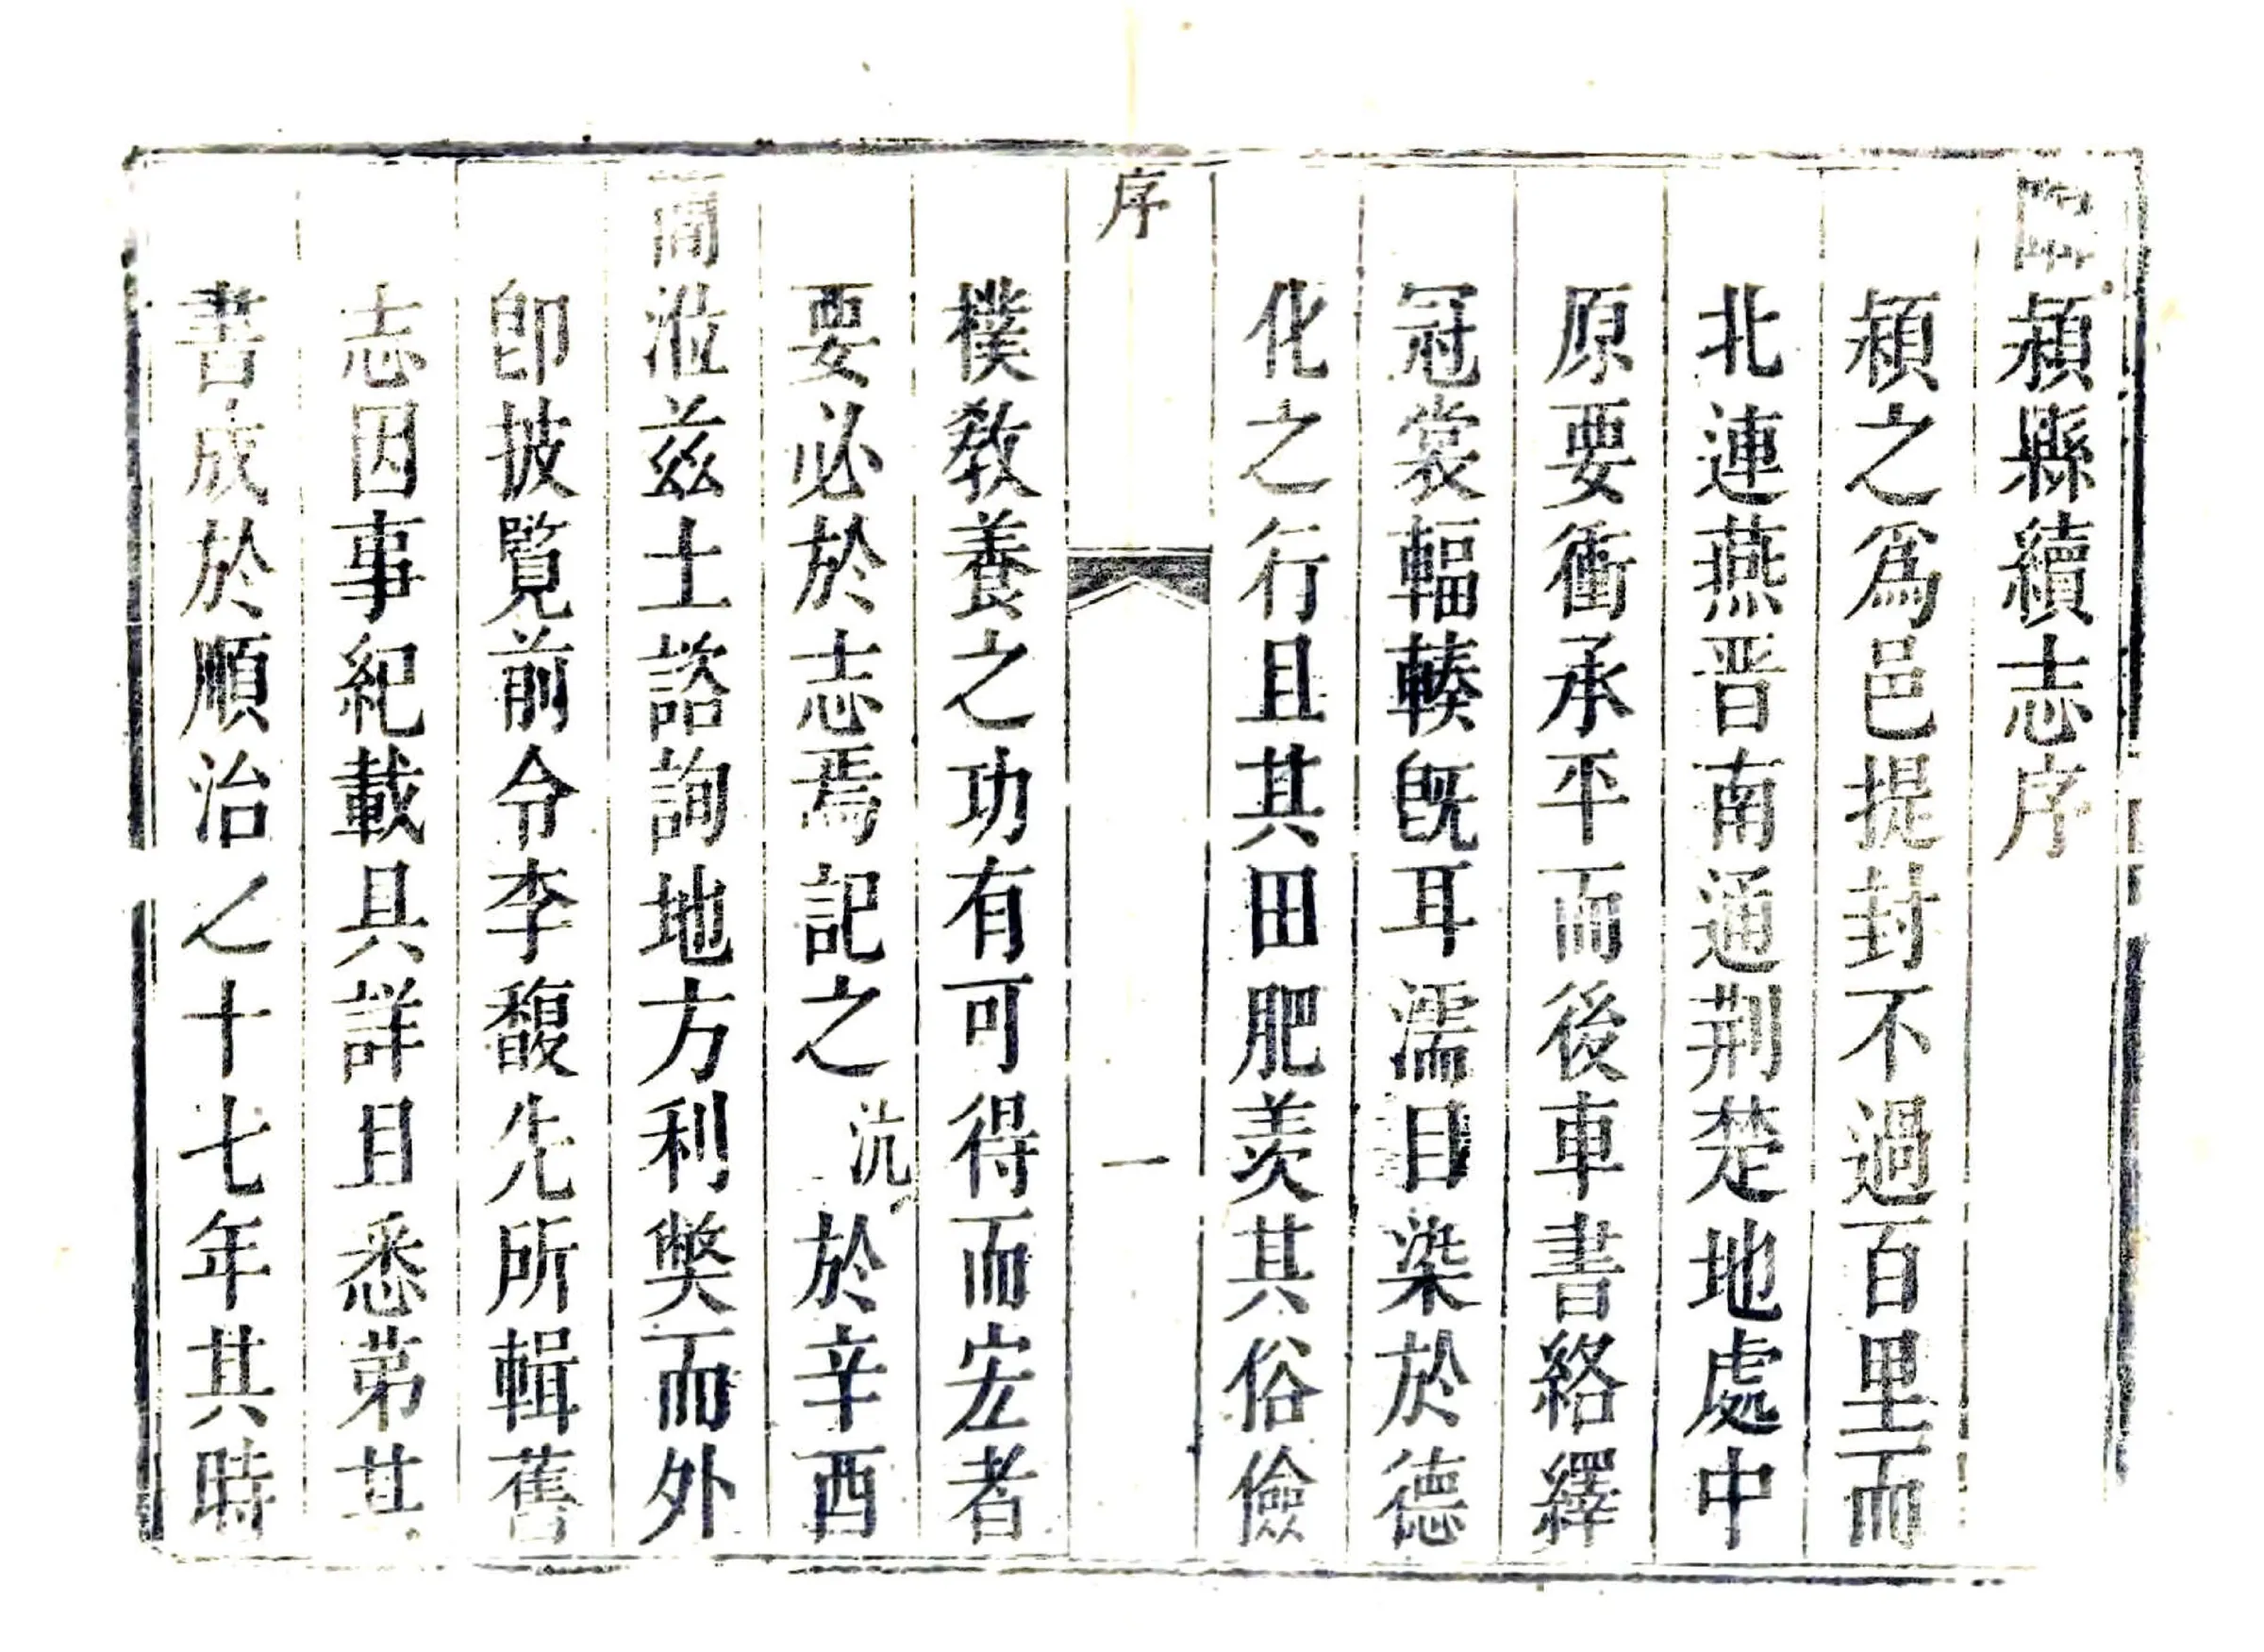 臨潁縣續志序
潁之爲邑提封不過百里而
北連燕晋南通荆楚地處中
原要衝承平而後車書絡繹
冠裳輻輳旣耳濡目染於德
化之行且其田肥羡其俗儉
序
一
樸敎養之功有可得而宏者
要必於志焉記之沆於辛酉
蒞兹土諮詢地方利獘而外
卽披覽前令李馥先所輯舊
志因事紀載具詳且悉第其
書成於順治之十七年其時